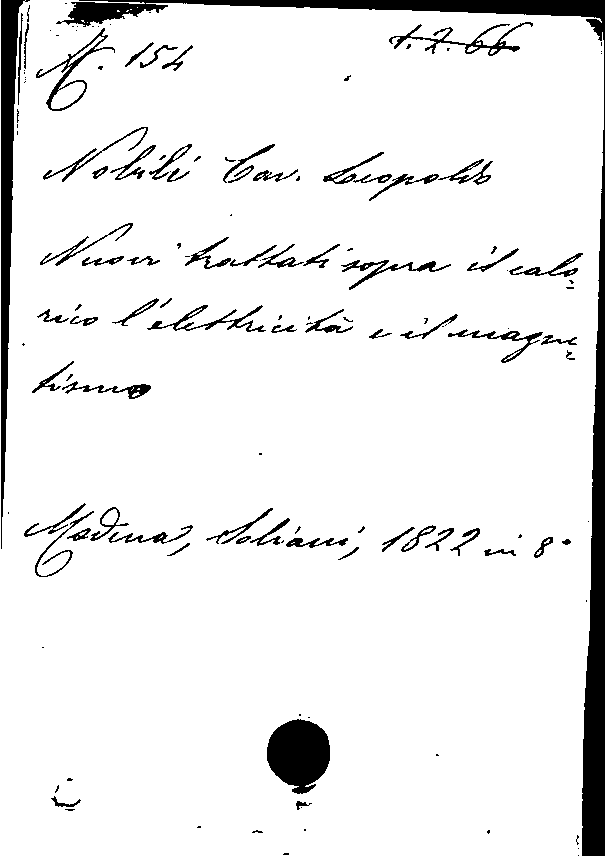 M. 154
1. 2. 66
Nobili Cav. Leopoldo
Nuovi trattati sopra il calo=
rico l'elettricità e il magne=
tismo
Modena, Soliani, 1822 in 8°